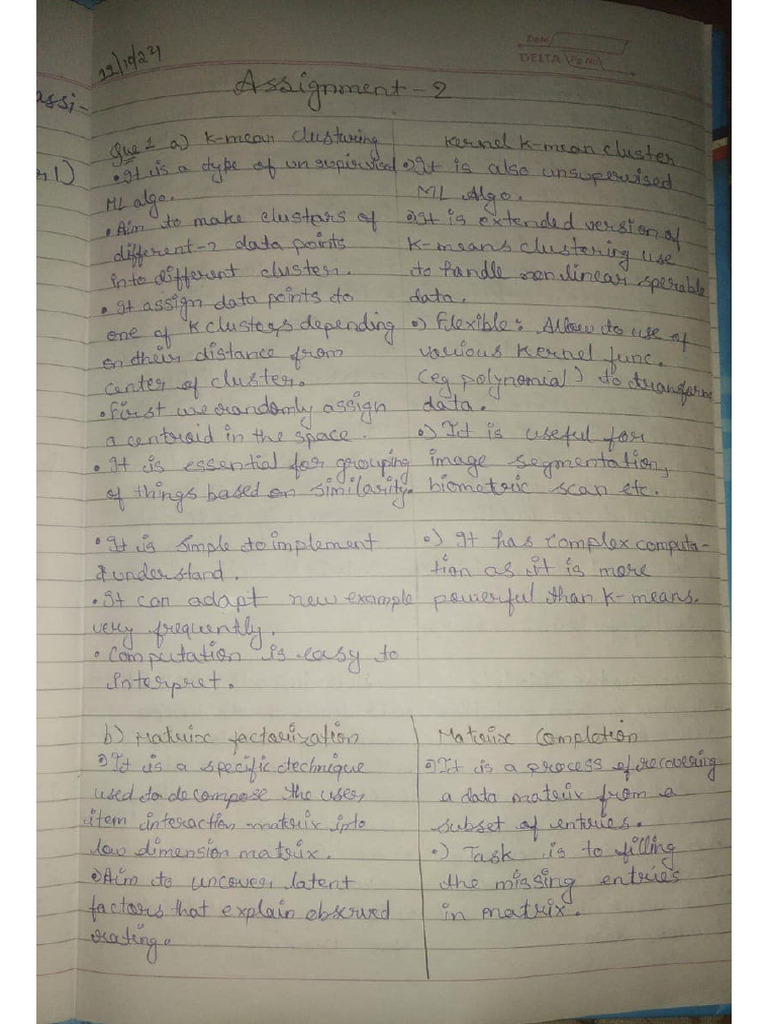 22/10/24
Date
DELTA Pg No
Assignment - 2
assi-
1)
Que 1 a) K-mean clusturing
• It is a type of unsupervised
ML algo.
• Aim to make clustars of
different-2 data points
into different cluster.
• It assign data points to
one of K clusters depending
on their distance from
center of cluster.
• First we randomly assign
a centroid in the space.
• It is essential for grouping
of things based on similarity.
• It is simple to implement
& understand.
• It can adapt new example
very frequently.
• Computation is easy to
interpret.
Kernel K-mean cluster
•) It is also unsupervised
ML Algo.
•) It is extended version of
K-means clustering use
to handle non linear sperable
data.
•) Flexible: Allow to use of
various Kernel func.
(eg polynomial) to transform
data.
•) It is useful for
image segmentation,
biometric scan etc.
•) It has complex computa-
tion as it is more
powerful than K-means.
b) Matrix factorization
•) It is a specific technique
used to decompose the user
item interaction matrix into
low dimension matrix.
•) Aim to uncover latent
factors that explain obserred
rating.
Matrix Completion
•) It is a process of recovering
a data matrix from a
subset of entries.
•) Task is to filling
the missing entries
in matrix.